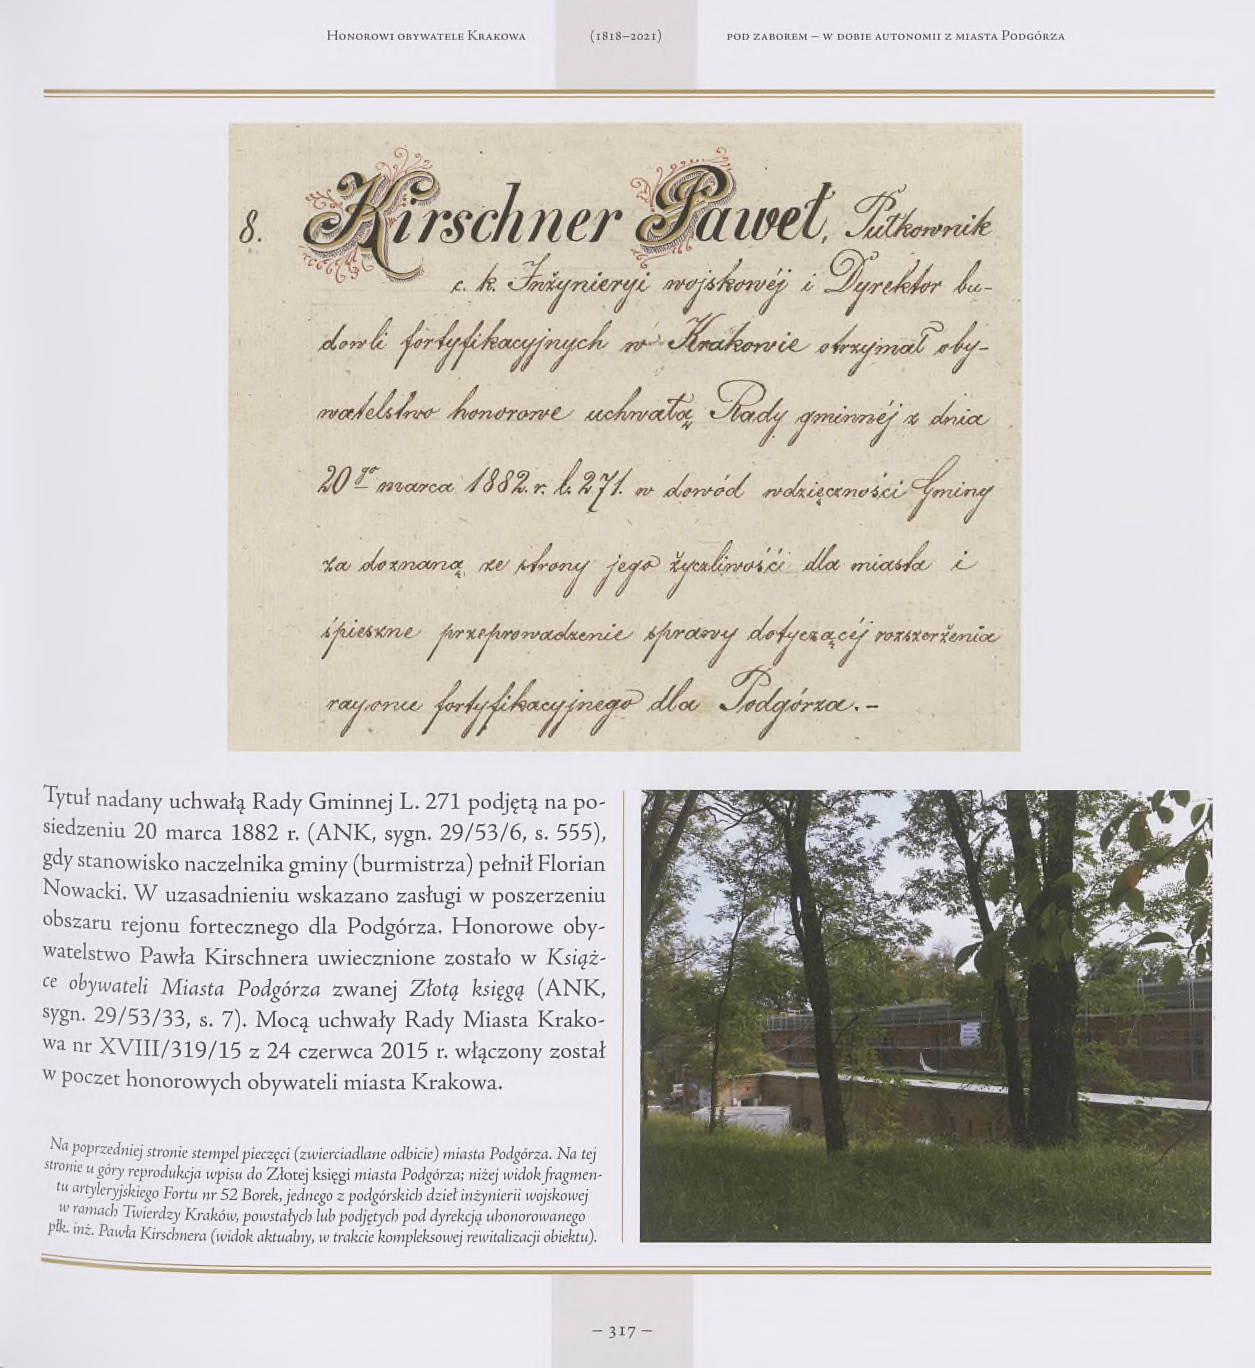 Honorowi obywatele Krakowa (1818–2021) pod zaborem – w dobie autonomii z miasta Podgórza
8. Kirschner Paweł, Pułkownik
c. k. Inżynieryi wojskowéj i Dyrektor bu-
dowli fortyfikacyjnych w Krakowie otrzymał oby-
watelstwo honorowe uchwałą Rady gminnéj z dnia
20go marca 1882. r. l. 271. w dowód wdzięczności Gminy
za doznaną ze strony jego życzliwości dla miasta i
śpieszne przeprowadzenie sprawy dotyczącéj rozszerżenia
rayonu fortyfikacyjnego dla Podgórza. –
Tytuł nadany uchwałą Rady Gminnej L. 271 podjętą na po-
siedzeniu 20 marca 1882 r. (ANK, sygn. 29/53/6, s. 555),
gdy stanowisko naczelnika gminy (burmistrza) pełnił Florian
Nowacki. W uzasadnieniu wskazano zasługi w poszerzeniu
obszaru rejonu fortecznego dla Podgórza. Honorowe oby-
watelstwo Pawła Kirschnera uwiecznione zostało w Książ-
ce obywateli Miasta Podgórza zwanej Złotą księgą (ANK,
sygn. 29/53/33, s. 7). Mocą uchwały Rady Miasta Krako-
wa nr XVIII/319/15 z 24 czerwca 2015 r. włączony został
w poczet honorowych obywateli miasta Krakowa.
Na poprzedniej stronie stempel pieczęci (zwierciadlane odbicie) miasta Podgórza. Na tej
stronie u góry reprodukcja wpisu do Złotej księgi miasta Podgórza; niżej widok fragmen-
tu artyleryjskiego Fortu nr 52 Borek, jednego z podgórskich dzieł inżynierii wojskowej
w ramach Twierdzy Kraków, powstałych lub podjętych pod dyrekcją uhonorowanego
płk. inż. Pawła Kirschnera (widok aktualny, w trakcie kompleksowej rewitalizacji obiektu).
– 317 –